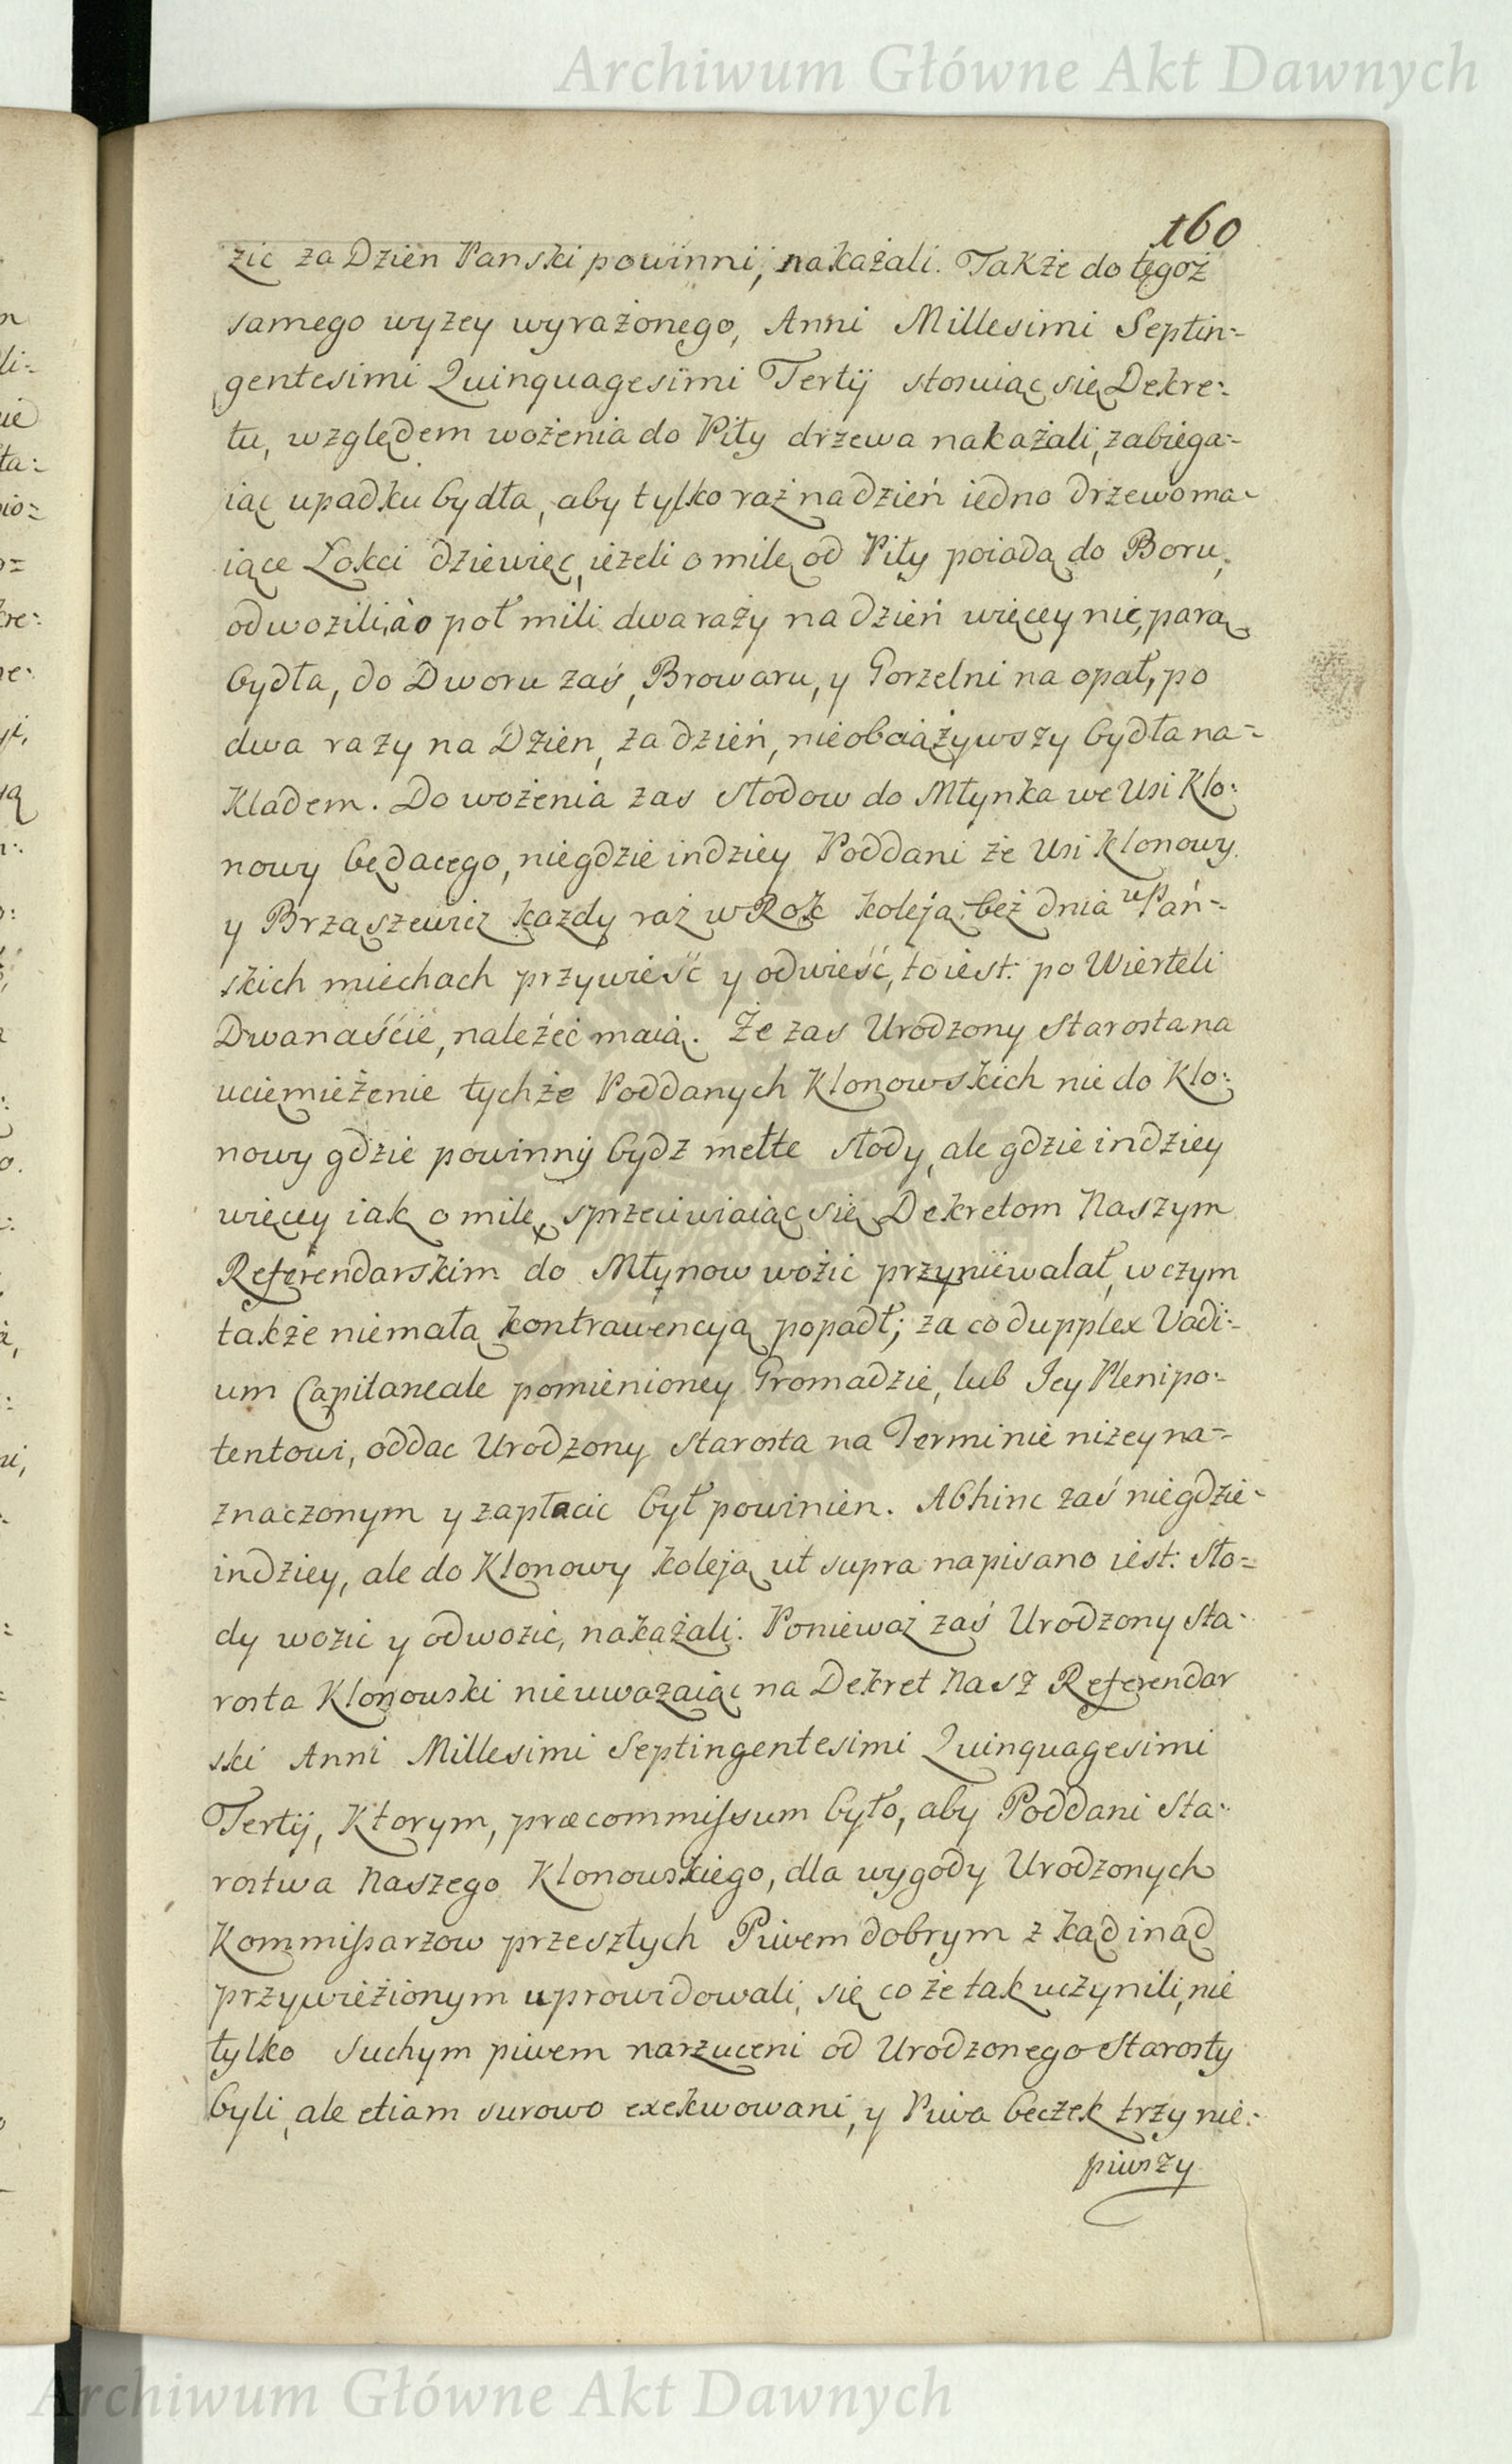 Archiwum Główne Akt Dawnych
160
zic za Dzien Panski powinni, nakażali. Także do tegoż
samego wyzey wyrażonego, Anni Millesimi Septin=
gentesimi Quinquagesimi Tertij stosuiąc się Dekre:
tu, względem wożenia do Piły drzewa nakażali, zabiega=
iąc upadku bydła, aby tylko raż na dzień iedno drzewo ma=
iące Łokci dziewięc, ieżeli o milę od Piły poiadą do Boru,
odwozili, a o poł mili dwa raży na dzień więcey nie, parą
bydła, do Dworu zaś, Browaru, y Gorzelni na opał, po
dwa razy na Dzien, za dzień, nieobciążywszy bydła na=
kladem. Do wożenia zas słodow do Młynka we Wsi Klo:
nowy będacego, niegdzie indziey Poddani że Wsi Klonowy
y Brzaszewicz kazdy raż w Rok koleją beż dnia w Pań=
skich miechach przywieść y odwieść, to iest: po Wierteli
Dwanaście, należeć maią. Że zas Urodzony Starosta na
uciemiężenie tychże Poddanych Klonowskich nie do Klo:
nowy gdzie powinnÿ bydz mełte słody, ale gdzie indziey
więcey iak o milę, sprzeciwiaiąc się Dekretom Naszym
Referendarskim do Młynow wożic przyniewalał, w czym
także niemałą kontrawencyą popadł; za co dupplex Vadi=
um Capitaneale pomienioney Gromadzie, lub Jey Plenipo=
tentowi, oddac Urodzony Starosta na Terminie niżey na=
znaczonym y zapłacic był powinien. Abhinc zaś niegdzie=
indziey, ale do Klonowy koleją ut supra napisano iest: sło=
dy wozic y odwozic, nakażali. Ponieważ zaś Urodzony Sta=
rosta Klonowski nieuważaiąc na Dekret Nasz Referendar
ski Anni Millesimi Septingentesimi Quinquagesimi
Tertij, Ktorym, præcommissum było, aby Poddani Sta=
rostwa Naszego Klonowskiego, dla wygody Urodzonych
Kommissarzow przeszłych Piwem dobrym z kąd inąd
przywieżionym uprowidowali, się co że tak uczynili, nie
tylko suchym piwem narzuceni od Urodzonego Starosty
byli, ale etiam surowo exekwowani, y Piwa beczek trzy nie=
piwszy
Archiwum Główne Akt Dawnych